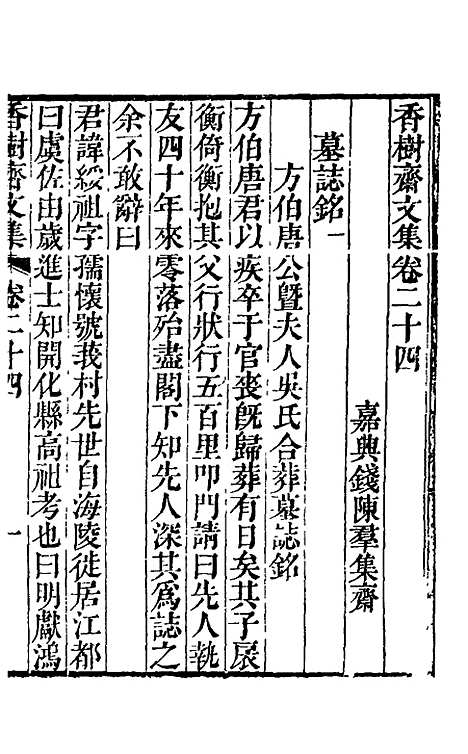 香樹齋文集卷二十四
嘉興錢陳羣集齋
墓誌銘一
方伯唐公曁夫人吳氏合葬墓誌銘
方伯唐君以疾卒于官喪旣歸葬有日矣其子扆
衡倚衡抱其父行狀行五百里叩門請曰先人執
友四十年來零落殆盡閣下知先人深其爲誌之
余不敢辭曰
君諱綏祖字孺懷號莪村先世自海陵徙居江都
曰虞佐由歲進士知開化縣高祖考也曰明獻鴻
香樹齋文集 卷二十四 一